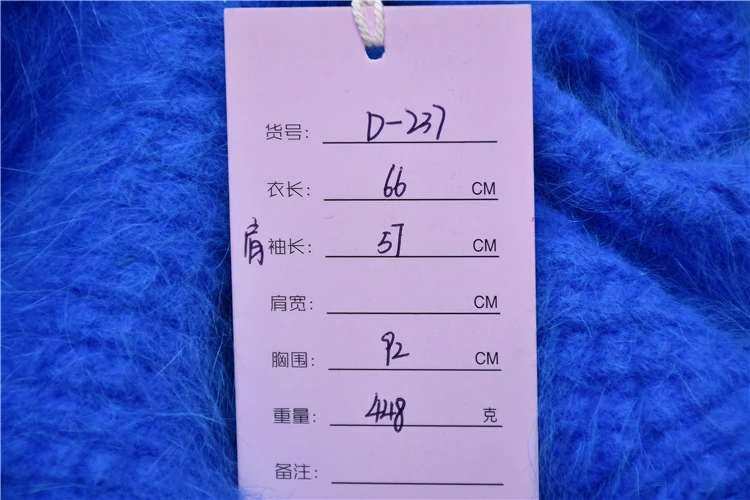 货号： D-237
衣长： 66 CM
肩袖长： 57 CM
肩宽： CM
胸围： 92 CM
重量： 448 克
备注：